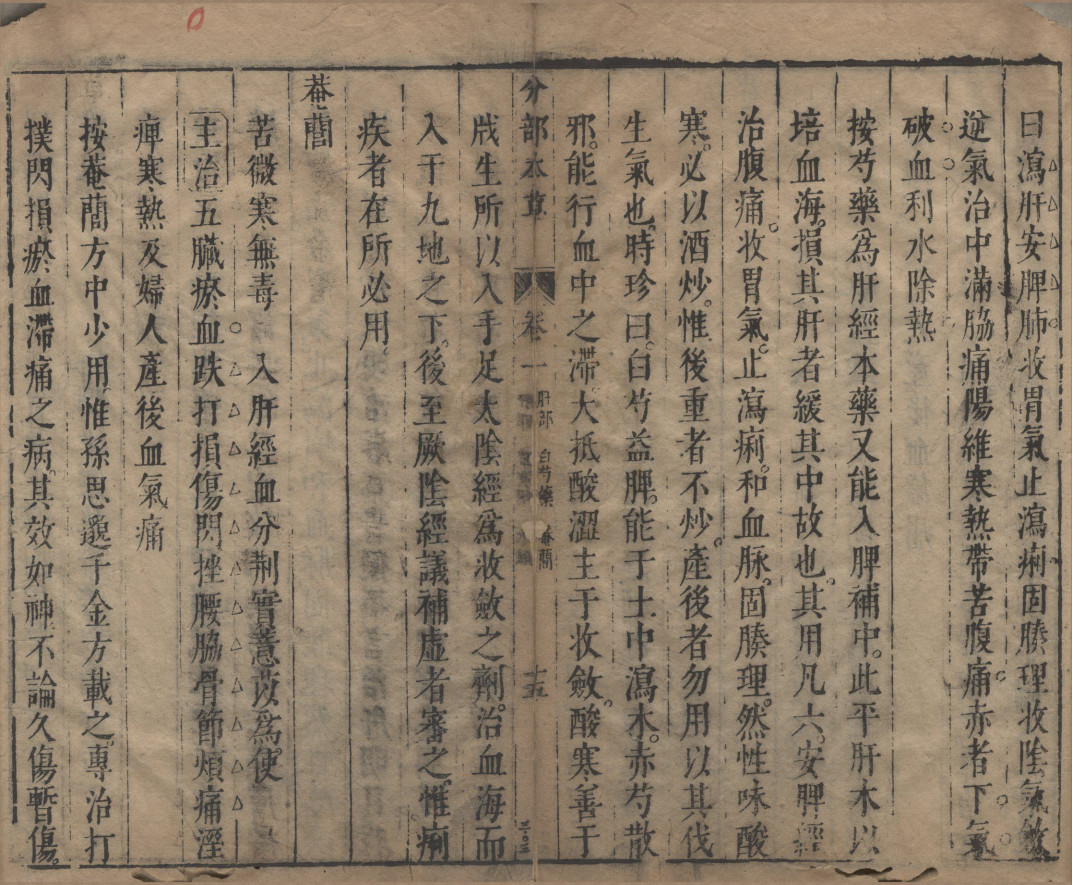 曰瀉肝安脾肺收胃氣止瀉痢固腠理收陰氣斂
逆氣治中滿脇痛陽維寒熱帶苦腹痛赤者下氣
破血利水除熱
按芍藥爲肝經本藥又能入脾補中此平肝木以
培血海損其肝者緩其中故也其用凡六安脾經
治腹痛收胃氣止瀉痢和血脉固腠理然性味酸
寒必以酒炒惟後重者不炒產後者勿用以其伐
生氣也時珍曰白芍益脾能于土中瀉木赤芍散
邪能行血中之滞大抵酸澀主于收斂酸寒善于
分部本草 卷一 肝部 白芍藥 菴䕡 十五
戕生所以入手足太陰經爲收斂之劑治血海而
入于九地之下後至厥陰經議補虛者審之惟痢
疾者在所必用
菴䕡
苦微寒無毒○入肝經血分荆實薏苡爲使
主治五臟瘀血跌打損傷閃挫腰脇骨節煩痛溼
痺寒熱及婦人產後血氣痛
按菴䕡方中少用惟孫思邈千金方載之專治打
撲閃損瘀血滯痛之病其效如神不論久傷暫傷